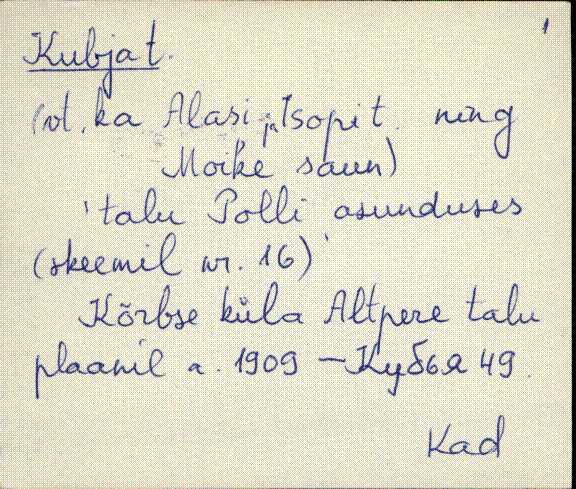 1
Kubjat.
(vt. ka Alasi ja Isopit ning
Moike saun)
'talu Polli asunduses
(skeemil nr. 16)'
Kõrbse küla Altpere talu
plaanil a. 1909 – Кубья 49.
Kad